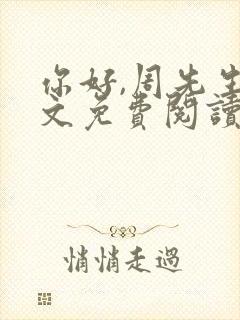 你好,周先生
文免費閱讀
悄悄走過